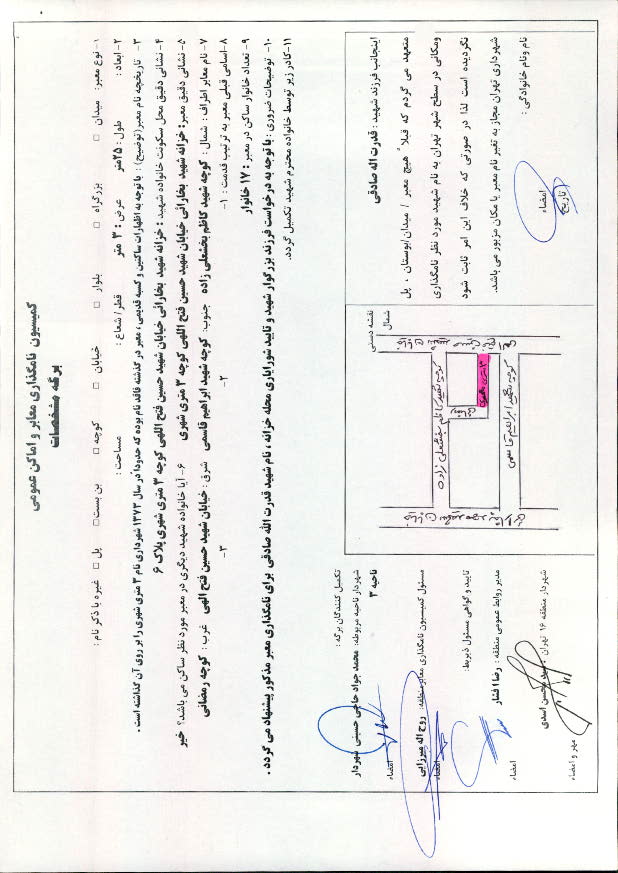 کمیسیون نامگذاری معابر و اماکن عمومی
برگه مشخصات
۱- نوع معبر: میدان □ بزرگراه □ بلوار □ خیابان □ کوچه □ بن بست □ پل □ غیره با ذکر نام :
۲- ابعاد : طول : ۲۵متر عرض : ۳ متر قطر/ شعاع : مساحت :
۳- تاریخچه نام معبر(توضیح) : با توجه به اظهارات ساکنین و کسبه قدیمی، معبر در گذشته فاقد نام بوده که حدودا در سال ۱۳۷۳ شهرداری نام ۳ متری شهری را بر روی آن گذاشته است .
۴- نشانی دقیق محل سکونت خانواده شهید : خزانه شهید بخارائی خیابان شهید حسین فتح اللهی کوچه ۳ متری شهری پلاک ۶
۵- نشانی دقیق معبر: خزانه شهید بخارائی خیابان شهید حسین فتح اللهی کوچه ۳ متری شهری ۶- آیا خانواده شهید دیگری در معبر مورد نظر ساکن می باشد؟ خیر
۷- نام معابر اطراف : شمال : کوچه شهید کاظم بخشعلی زاده جنوب: کوچه شهید ابراهیم قاسمی شرق : خیابان شهید حسین فتح الهی غرب : کوچه رمضانی
۸- اسامی قبلی معبر به ترتیب قدمت : ۱- ۲- ۳-
۹- تعداد خانوار ساکن در معبر : ۱۷ خانوار
۱۰- توضیحات ضروری : با توجه به درخواست فرزند بزرگوار شهید و تایید شورایاری محله خزانه ، نام شهید قدرت الله صادقی برای نامگذاری معبر مذکور پیشنهاد می گردد .
۱۱- کادر زیر توسط خانواده محترم شهید تکمیل گردد.
اینجانب فرزند شهید : قدرت اله صادقی
متعهد می گردم که قبلا" هیچ معبر / میدان/بوستان . پل
ومکانی در سطح شهر تهران به نام شهید مورد نظر نامگذاری
نگردیده است لذا در صورتی که خلاف این امر ثابت شود
شهرداری تهران مجاز به تغییر نام معبر یا مکان مزبور می باشد.
نام ونام خانوادگی :
امضاء
تاریخ
نقشه دستی
شمال
کوچه شهید کاظم بخشعلی زاده
۳ متری شهری
کوچه شهید ابراهیم قاسمی
تکمیل کنندگان برگه :
شهردار ناحیه مربوطه: محمد جواد حاجی حسینی شهردار
ناحیه ۳
امضاء
مسئول کمیسیون نامگذاری معابر منطقه: روح اله میرزایی
امضاء
تایید و گواهی مسئول ذیربط:
مدیر روابط عمومی منطقه : رضا افشار
امضاء
شهردار منطقه ۱۶ تهران : سید محسن اسدی
مهر و امضاء